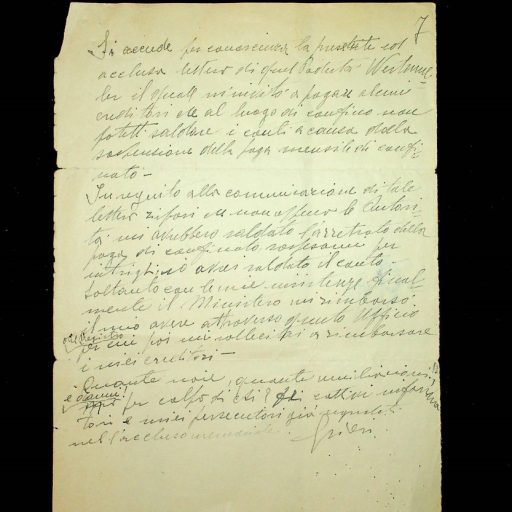 7
Si accende per conoscenza la presente col
acclusa lettera di quel Podestà
per il quale m'invitò a pagare alcuni
creditori che al luogo di confino non
potetti saldare i conti a causa della
sospensione della paga mensile di confi-
nato -
In seguito alla comunicazione di tale
lettera risposi che non appena le Autori-
tà mi avrebbero saldato l'arretrato della
paga di confinato sospesami per
intrighi, io avrei saldato il conto -
Soltanto con le mie insistenze final-
mente il Ministero mi rimborsò
il mio avere attraverso questo Ufficio
per cui poi mi sollecitai a rimborsare
i miei creditori -
Quante noie, quante umiliazioni
e danni per colpa di chi? Di cattivi informa-
tori e miei persecutori già segnalati
nell'accluso memoriale